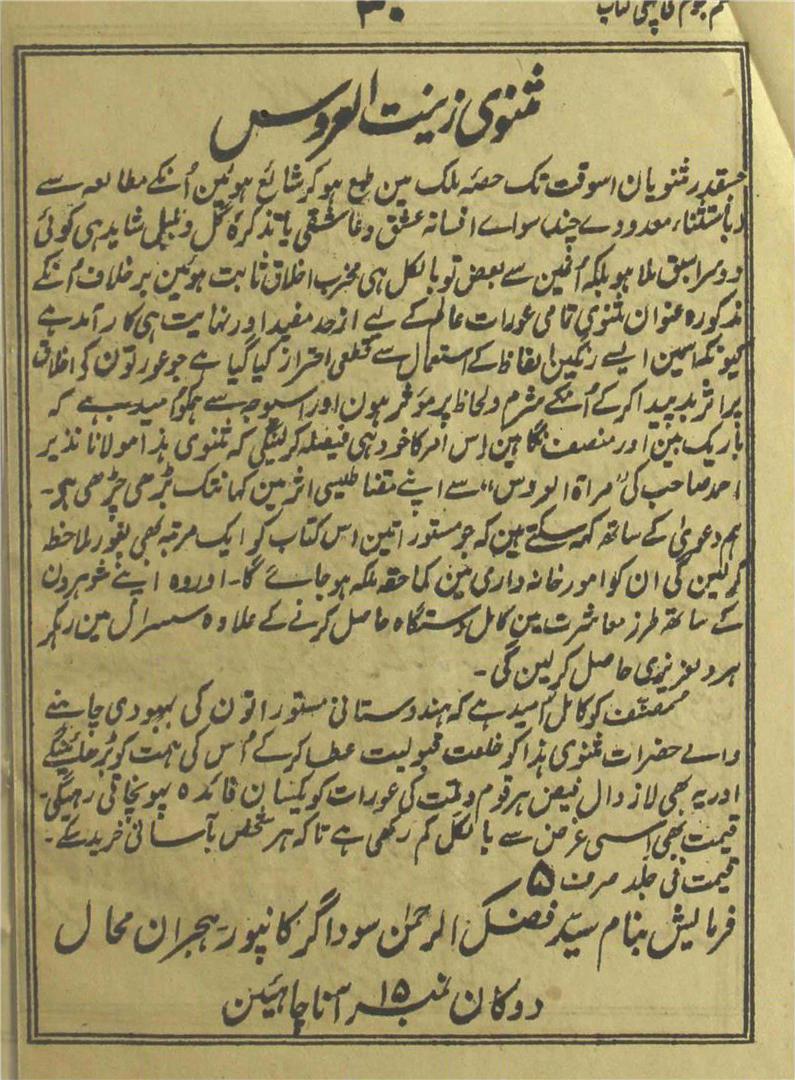 ۳۰
کی پہلی کتاب
مثنوی زینت العروس
جسقدر مثنویان اسوقت تک حصۂ ملک مین طبع ہو کر شائع ہوئین اُنکے مطالعہ سے
(باستثناء معدودے چند سواے افسانہ عشق و عاشقی یا تذکرۂ گل و بلبل شاید ہی کوئی
دوسرا سبق ملا ہو بلکہ اُنمین سے بعض تو بالکل ہی مخرب اخلاق ثابت ہوئین برخلاف اُنکے
مذکورہ عنوان مثنوی تمامی عورات عالم کے لیے ازحد مفید اور نہایت ہی کارآمد ہے
کیونکہ اسمین ایسے رنگین الفاظ کے استعمال سے قطعی احتراز کیا گیا ہے جو عورتون کے اخلاق
پر اثر بد پیدا کرکے اُنکے شرم و لحاظ پر مؤثر ہون اور اسیوجہ سے ہمکو اُمید ہے کہ
باریک بین اور منصف نگاہین اِس امر کا خود ہی فیصلہ کرلینگی کہ مثنوی ہذا مولانا نذیر
احمد صاحب کی "مراۃ العروس" سے اپنے مقناطیسی اثر مین کہانتک بڑھی چڑھی ہے۔
ہم دعویٰ کے ساتھ کہہ سکتے ہین کہ جو مستوراتین اس کتاب کو ایک مرتبہ بھی بغور ملاحظہ
کرلین گی ان کو امور خانہ داری مین کما حقہ ملکہ ہو جائے گا۔ اور وہ اپنے شوہرون
کے ساتھ طرز معاشرت مین کامل دستگاہ حاصل کرنے کے علاوہ سسرال مین رہکر
ہردلعزیزی حاصل کرلین گی۔
مصنف کو کامل اُمید ہے کہ ہندوستانی مستوراتون کی بہبودی چاہنے
والے حضرات مثنوی ہذا کو خلعت قبولیت عطا کرکے اُس کی ہمت کو بڑھائینگے
اور یہ بھی لازوال فیض ہر قوم و ملت کی عورات کو یکسان فائدہ پہونچاتی رہیگی۔
قیمت بھی اسی غرض سے بالکل کم رکھی ہے تاکہ ہر شخص بآسانی خرید سکے۔
قیمت فی جلد صرف ۵؍
فرمایش بنام سید فضل الرحمٰن سوداگر کانپور۔ ہجران محال
دوکان نمبر ۱۵ آنا چاہئین